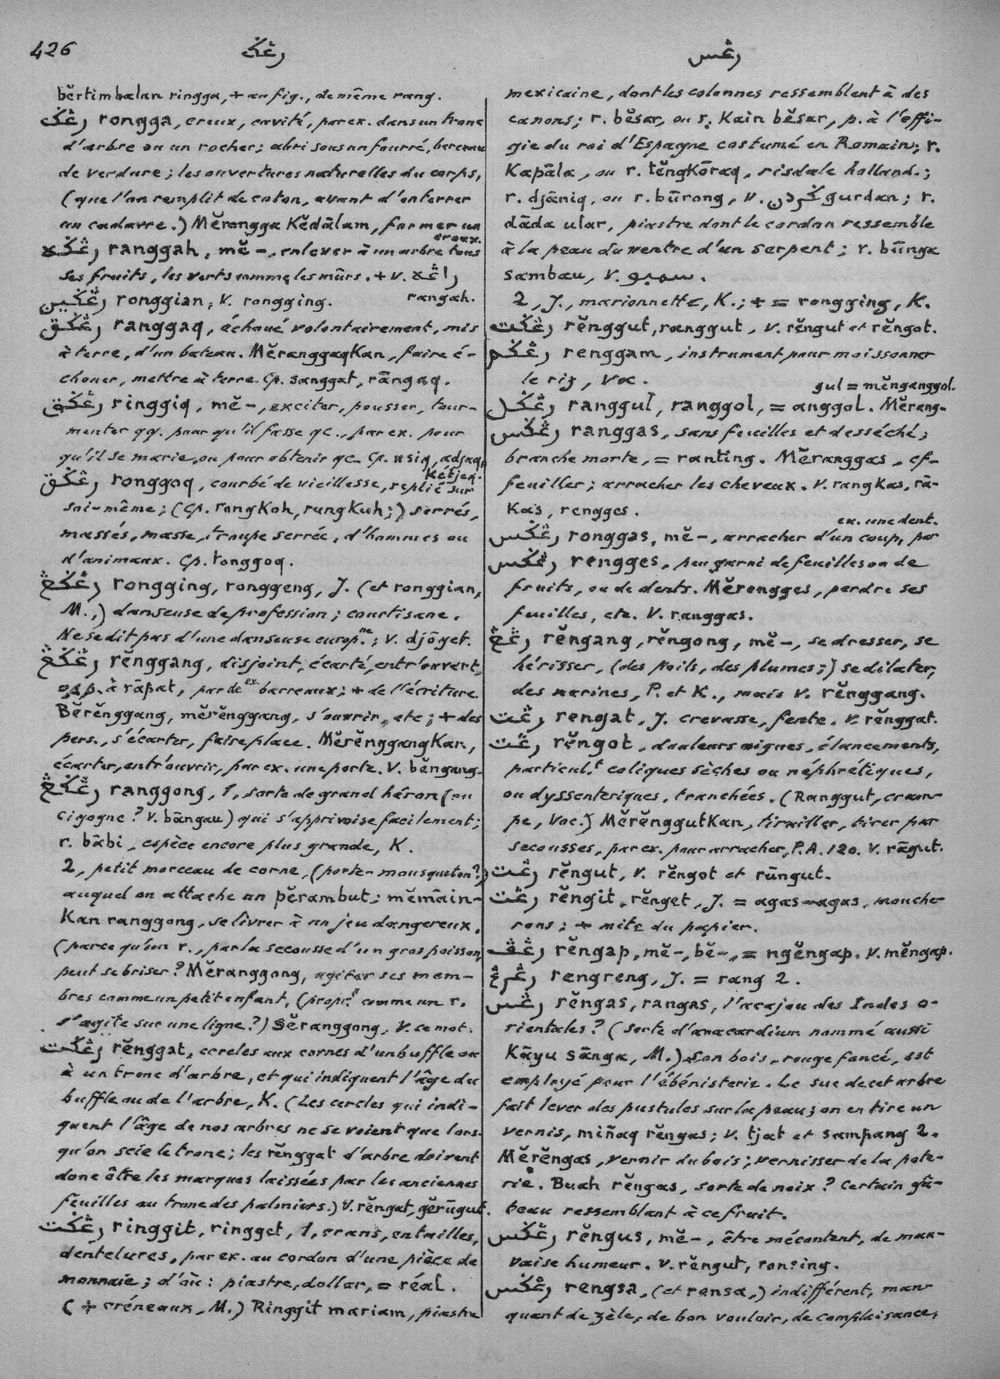 426
رڠݢ
رڠس
bĕrtimbalan ringga, + au fig., de même rang.
رڠݢ rongga, creux, cavité, par ex. dans un tronc
d'arbre ou un rocher; abri sous un fourré, berceau
de verdure; les ouvertures naturelles du corps,
(que l'on remplit de coton, avant d'enterrer
un cadavre.) Mĕrongga Kĕdālam, former un
creux.
رڠݢه ranggah, mĕ-, enlever à un arbre tous
ses fruits, les verts comme les mûrs. + v. راڠه
rangah.
رڠݢين ronggian, v. rongging.
رڠݢق ranggaq, échoué volontairement, mis
à terre, d'un bateau. MĕranggaqKan, faire é-
chouer, mettre à terre. Cp. sanggat, rāngaq.
رڠݢق ringgiq, mĕ-, exciter, pousser, tour-
menter qq. pour qu'il fasse qc., par ex. pour
qu'il se marie, ou pour obtenir qc. Cp. usiq, adjaq,
Kĕtjeq.
رڠݢق ronggoq, courbé de vieillesse, replié sur
soi-même; (Cp. rongKoh, rungKuh;) serrés,
massés, masse, troupe serrée, d'hommes ou
d'animaux. Cp. tonggoq.
رڠݢڠ rongging, ronggeng, J. (et ronggian,
M.,) danseuse de profession; courtisane.
Ne se dit pas d'une danseuse europne.; v. djōget.
رڠݢڠ rĕnggang, disjoint, écarté, entr'ouvert,
opp. à rāpat, par de ex. barreaux; + de l'écriture
Bĕrĕnggang, mĕrĕnggang, s'ouvrir, etc; + des
pers., s'écarter, faire place. MĕrĕnggangKan,
écarter, entr'ouvrir, par ex. une porte. V. bĕngang.
رڠݢڠ ranggong, 1, sorte de grand héron (ou
cigogne? V. bāngau) qui s'apprivoise facilement;
r. bābi, espèce encore plus grande, K.
2, petit morceau de corne, (porte-mousqueton?)
auquel on attache un pĕrambut; mĕmāin-
Kan ranggong, se livrer à un jeu dangereux,
(parce qu'un r., par la secousse d'un gros poisson,
peut se briser? Mĕranggong, agiter ses mem-
bres comme un petit enfant, (propt comme un r.
s'agite sur une ligne?) Sĕranggong, V. ce mot.
رڠݢت rĕnggat, cercles aux cornes d'un buffle ou
à un tronc d'arbre, et qui indiquent l'âge du
buffle ou de l'arbre, K. (Les cercles qui indi-
quent l'âge de nos arbres ne se voient que lors-
qu'on scie le tronc; les rĕnggat d'arbre doivent
donc être les marques laissées par les anciennes
feuilles au tronc des palmiers.) V. rĕngat, gĕrūgut.
رڠݢت ringgit, ringget, 1, crans, entailles,
dentelures, par ex. au cordon d'une pièce de
monnaie; d'où: piastre, dollar, = réal.
( + créneaux, M.) Ringgit mariam, piastre
mexicaine, dont les colonnes ressemblent à des
canons; r. bĕsar, ou r. Kain bĕsar, p. à l'effi-
gie du roi d'Espagne costumé en Romain; r.
Kapāla, ou r. tĕngKōraq, risdale holland.;
r. djāniq, ou r. būrong, v. ݢردن gurdan; r.
dāda ular, piastre dont le cordon ressemble
à la peau du ventre d'un serpent; r. būnga
sambau, v. سمبو.
2, J., marionnette, K.; + = rongging, K.
رڠݢت rĕnggut, ranggut, v. rĕngut et rĕngot.
رڠݢم renggam, instrument pour moissonner
le riz, Voc.
gul = mĕnganggol.
رڠݢل ranggul, ranggol, = anggol. Mĕrang-
رڠݢس ranggas, sans feuilles et desséché;
branche morte, = ranting. Mĕranggas, ef-
feuiller; arracher les cheveux. V. rangKas, rā-
Kas, rengges.
ex. une dent.
رڠݢس ronggas, mĕ-, arracher d'un coup, par
رڠݢس rengges, peu garni de feuilles ou de
fruits, ou de dents. Mĕrengges, perdre ses
feuilles, etc. V. ranggas.
رڠڠ rĕngang, rĕngong, mĕ-, se dresser, se
hérisser, (des poils, des plumes;) se dilater,
des narines, P. et K., mais v. rĕnggang.
رڠت rengat, J. crevasse, fente. V. rĕnggat.
رڠت rĕngot, douleurs aigues, élancements,
particul.t coliques sèches ou néphrétiques,
ou dyssenteriques, tranchées. (Ranggut, cram-
pe, Voc.) MĕrĕnggutKan, tirailler, tirer par
secousses, par ex. pour arracher, P.A. 120. V. rāgut.
رڠت rĕngut, v. rĕngot et rūngut.
رڠت rĕngit, rĕnget, J. = agas-agas, mouche-
rons; + mite du papier.
رڠڤ rĕngap, mĕ-, bĕ-, = ngĕngap. V. mĕngap.
رڠرڠ rengreng, J. = rang 2.
رڠس rĕngas, rangas, l'acajou des Indes o-
rientales? (sorte d'anacardium nommé aussi
Kāyu sānga, M.) Son bois, rouge foncé, est
employé pour l'ébénisterie. Le suc de cet arbre
fait lever des pustules sur la peau; on en tire un
vernis, miñaq rĕngas; v. tjat et sampang 2.
Mĕrĕngas, vernir du bois; vernisser de la pote-
rie. Buah rĕngas, sorte de noix? Certain gâ-
teau ressemblant à ce fruit.
رڠݢس rĕngus, mĕ-, être mécontent, de mau-
vaise humeur. V. rĕngut, ronsing.
رڠݢس rengsa, (et rensa,) indifférent, man-
quant de zèle, de bon vouloir, de complaisance,